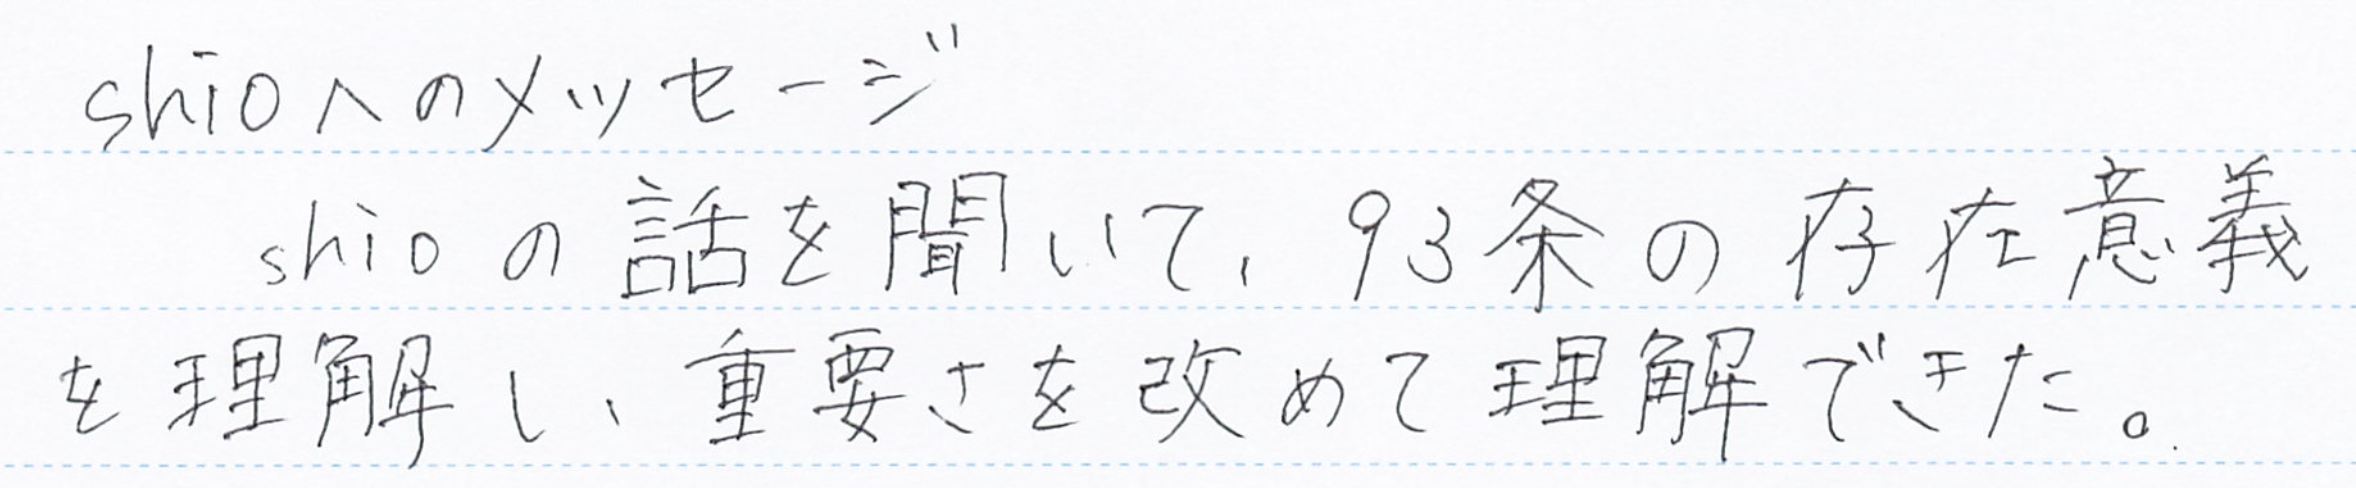 shioへのメッセージ
shioの話を聞いて、93条の存在意義
を理解し、重要さを改めて理解できた。